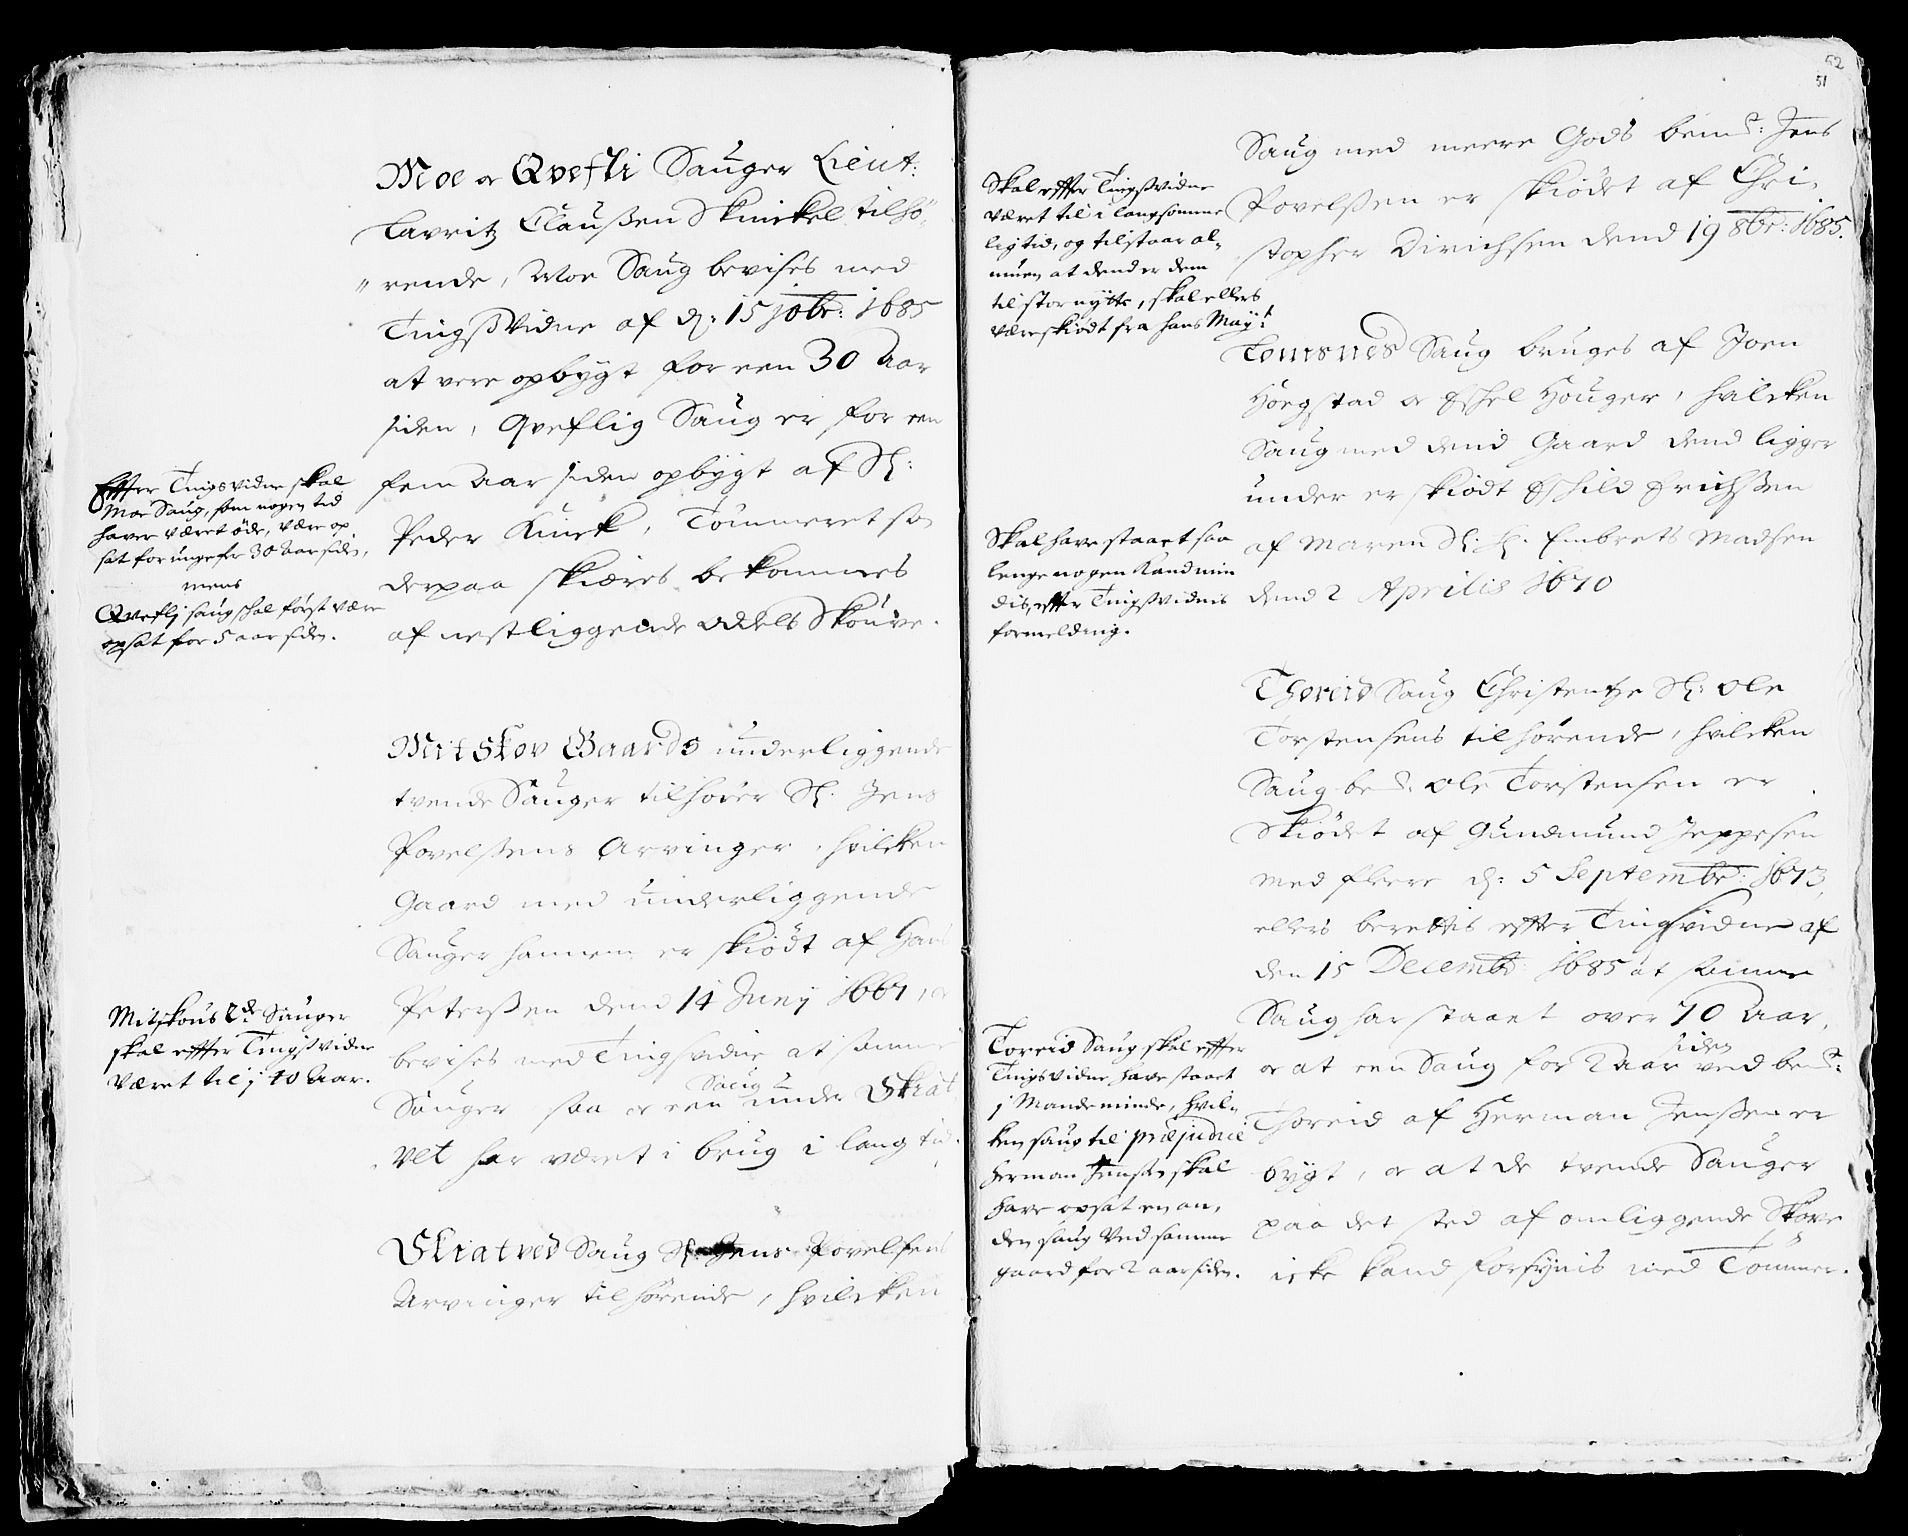 Moe og Qvefli Sauger Lieut:
Lavritz Claussen Skinkel tilhö,,
,, rende, Moe Saug bevises med
Tingsvidne af d: 15 xobr: 1685
at vere opbygt for een 30 Aar
siden, Qveflig Saug er for een
fem Aar siden opbygt af Sl:
Peder Knick, Tømmeret som
derpaa skiæres bekommes
af nestliggende Odels Skouve.
Effter Tingsvidne skal
Moe Saug, som nogen tid
hafver været øde, være op
sat for ungefer 30 Aar siden,
mens
Qvefli saug schal først være
opsat for 5 aar siden.
Mitskov Gaards underliggende
tvende Sauger tilhører Sl. Jens
Povelssens Arvinger, hvilcken
Gaard med underliggende
Sauger hannem er skiødt af Hans
Peterssen dend 14 Junij 1667, og
bevises med Tingsvidne at samme
Sauger saa og een Saug under Skiat
vet har været i brug i lang tid.
Mitskous 2de Sauger
skal effter Tingsvidne
været til i 40 Aar.
Skiatved Saug Sl. Jens Povelsens
Arvinger tilhørende, hvilcken
52
51
Saug med meere Gods bemt: Jens
Povelssen er skiödet af Chri,
stopher Dirichsen dend 19 8br: 1685.
Skal effter Tingsvidne
været til i langsomme
lig tid, og tilstaar al,,
muen at dend er dem
til stor nytte, skal ellers
være skiødt fra hans Mayt:
Tomsnes Saug bruges af Joen
Hörgstad og Eshel Houger, hvilcken
Saug med dend Gaard dend ligger
under er skiödt Eschild Erichssen
af Maren Sl. Embrets Madsen
dend 2 Aprilis 1670
Skal have staaet saa
lenge nogen kand min
dis, effter Tingsvidnis
formelding.
Thoreid Saug Christentze Sl: Ole
Torstensens tilhørende, hvilcken
Saug bete: Ole Torstensen er
Skiödet af Gundmund Jeppesen
med fleere d: 5 Septembr: 1673,
ellers berettis effter Tingsvidne af
den 15 Decembr: 1685 at samme
Saug har staaet over 70 Aar,
og at een Saug for 2 Aar siden ved bemt:
Thoreid af Herman Jenssen er
bygt, og at de tvende Sauger
paa det sted af omliggende Skove
icke kand forsynis med Tömmer.
Toreid Saug skal effter
Tingsvidne have staaet
i Mande minde, hvil,,
ken saug til præjudice
Herman Jensen skal
have opsat en an,
den saug ved samme
gaard for 2 aar siden.